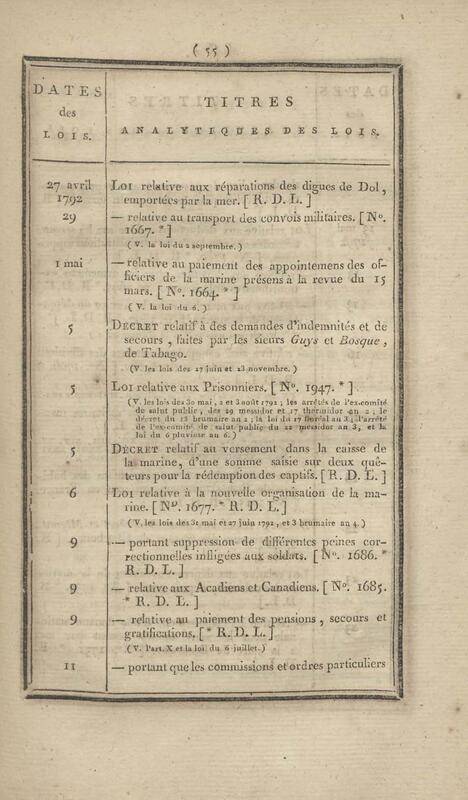 ( 55 )
DATES
des
LOIS.
TITRES
ANALYTIQUES DES LOIS.
27 avril
1792
LOI relative aux réparations des digues de Dol,
emportées par la mer. [ R. D. L. ]
29
— relative au transport des convois militaires. [ N°.
1667. * ]
( V. la loi du 2 septembre. )
1 mai
— relative au paiement des appointemens des of-
ficiers de la marine présens à la revue du 15
mars. [ N°. 1664. * ]
( V. la loi du 6. )
5
DÉCRET relatif à des demandes d'indemnités et de
secours, faites par les sieurs Guys et Bosque,
de Tabago.
( V. les lois des 27 juin et 23 novembre. )
5
LOI relative aux Prisonniers. [ N°. 1947. * ]
( V. les lois des 30 mai, 2 et 3 août 1792 ; les arrêtés de l'ex.comité
de salut public, des 29 messidor et 17 thermidor an 2 ; le
décret du 13 brumaire an 2 ; la loi du 17 floréal an 3 ; l'arrêté
de l'ex-comité de salut public du 22 messidor an 3, et la
loi du 6 pluviose an 6. )
5
DÉCRET relatif au versement dans la caisse de
la marine, d'une somme saisie sur deux quê-
teurs pour la rédemption des captifs. [ R. D. L. ]
6
LOI relative à la nouvelle organisation de la ma-
rine. [ N°. 1677. * R. D. L. ]
( V. les lois des 31 mai et 27 juin 1792, et 3 brumaire an 4. )
9
— portant suppression de différentes peines cor-
rectionnelles infligées aux soldats. [ N°. 1686. *
R. D. L. ]
9
— relative aux Acadiens et Canadiens. [ N°. 1685.
* R. D. L. ]
9
— relative au paiement des pensions, secours et
gratifications. [ * R. D. L. ]
( V. l'art. X et la loi du 6 juillet. )
11
— portant que les commissions et ordres particuliers